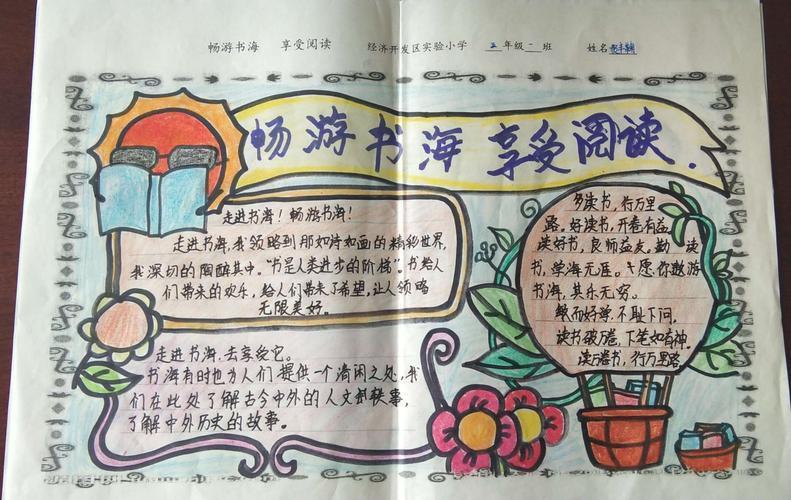 畅游书海 享受阅读 经济开发区实验小学 五年级一班 姓名
畅游书海 享受阅读.
走进书海！畅游书海！
走进书海，我领略到那如诗如画的精彩世界，
我深切的陶醉其中。“书是人类进步的阶梯”。书给人
们带来的欢乐，给人们带来了希望，让人领略
无限美好。
走进书海，去享受它。
书海有时也为人们提供一个清闲之处，我
们在此处了解古今中外的人文轶事，
了解中外历史的故事。
多读书，行万里
路，好读书，开卷有益
读好书，良师益友，勤 读
书，学海无涯。愿你遨游
书海，其乐无穷。
敏而好学，不耻下问，
读书破万卷，下笔如有神。
读万卷书，行万里路